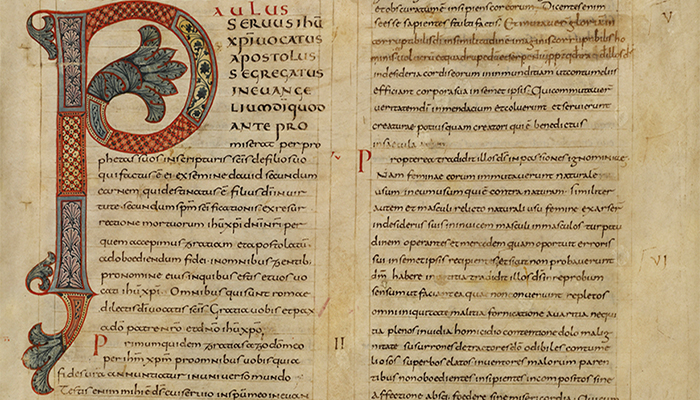 PAULUS
SERVUS IHU
XPI VOCATUS
APOSTOLUS
SEGREGATUS
IN EVANGE
LIUM DI QUOD
ANTE PRO
miserat per pro
phetas suos inscripturis scis defiliosuo
qui factus e ei exsemine david secundum
carnem qui destinatus e filius di invir
tute secundum spm scificationis exresur
rectione mortuorum ihu xpi dni nri per
quem accepimus gratiam et apostolatu
ad oboediendum fidei inomnibus gentib;
pro nomine eius inquibus estis et vos vo
cati ihu xpi. Omnibus qui sunt romae
dilectis di vocatis scis. Gratia vobis et pax
a do patre nro et dno ihu xpo.
Primum quidem gratias ago do meo
per ihm xpm pro omnibus vobis quia
fides vra annuntiatur in universo mundo
Testis enim mihi e ds cui servio in spu meo in evan
et obscuratum e insipiens cor eorum. Dicentes enim
se esse sapientes stulti facti s. Et mutaver gloriam
incorruptibilis di in similitudine imaginis corruptibilis ho
minis
desideria cordis eorum in inmunditiam ut contumeliis
efficiant corpora sua in semet ipsis. Qui commutaver
veritatem di in mendacium et coluerunt et servierunt
creaturae potius quam creatori qui e benedictus
in saecula
Propterea tradidit illos ds in passiones ignominiae
Nam feminae eorum inmutaverunt naturale
usum in eum usum qui e contra naturam. Similiter
autem et masculi relicto naturali usu feminae exarser
in desideriis suis in invicem masculi in masculos turpitu
dinem operantes et mercedem quam oportuit erroris
sui in semet ipsis recipientes et sicut non probaverunt
dm habere in notitia tradidit illos ds in reprobum
sensum ut faciant ea quae non conveniunt repletos
omni iniquitate malitia fornicatione avaritia nequi
tia plenos invidia homicidio contentione dolo malig
nitate susurrones detractores do odibiles contume
liosos superbos elatos inventores malorum paren
tibus non oboedientes insipientes incompositos sine
affectione absq; foedere sine misericordia
V
VI
II